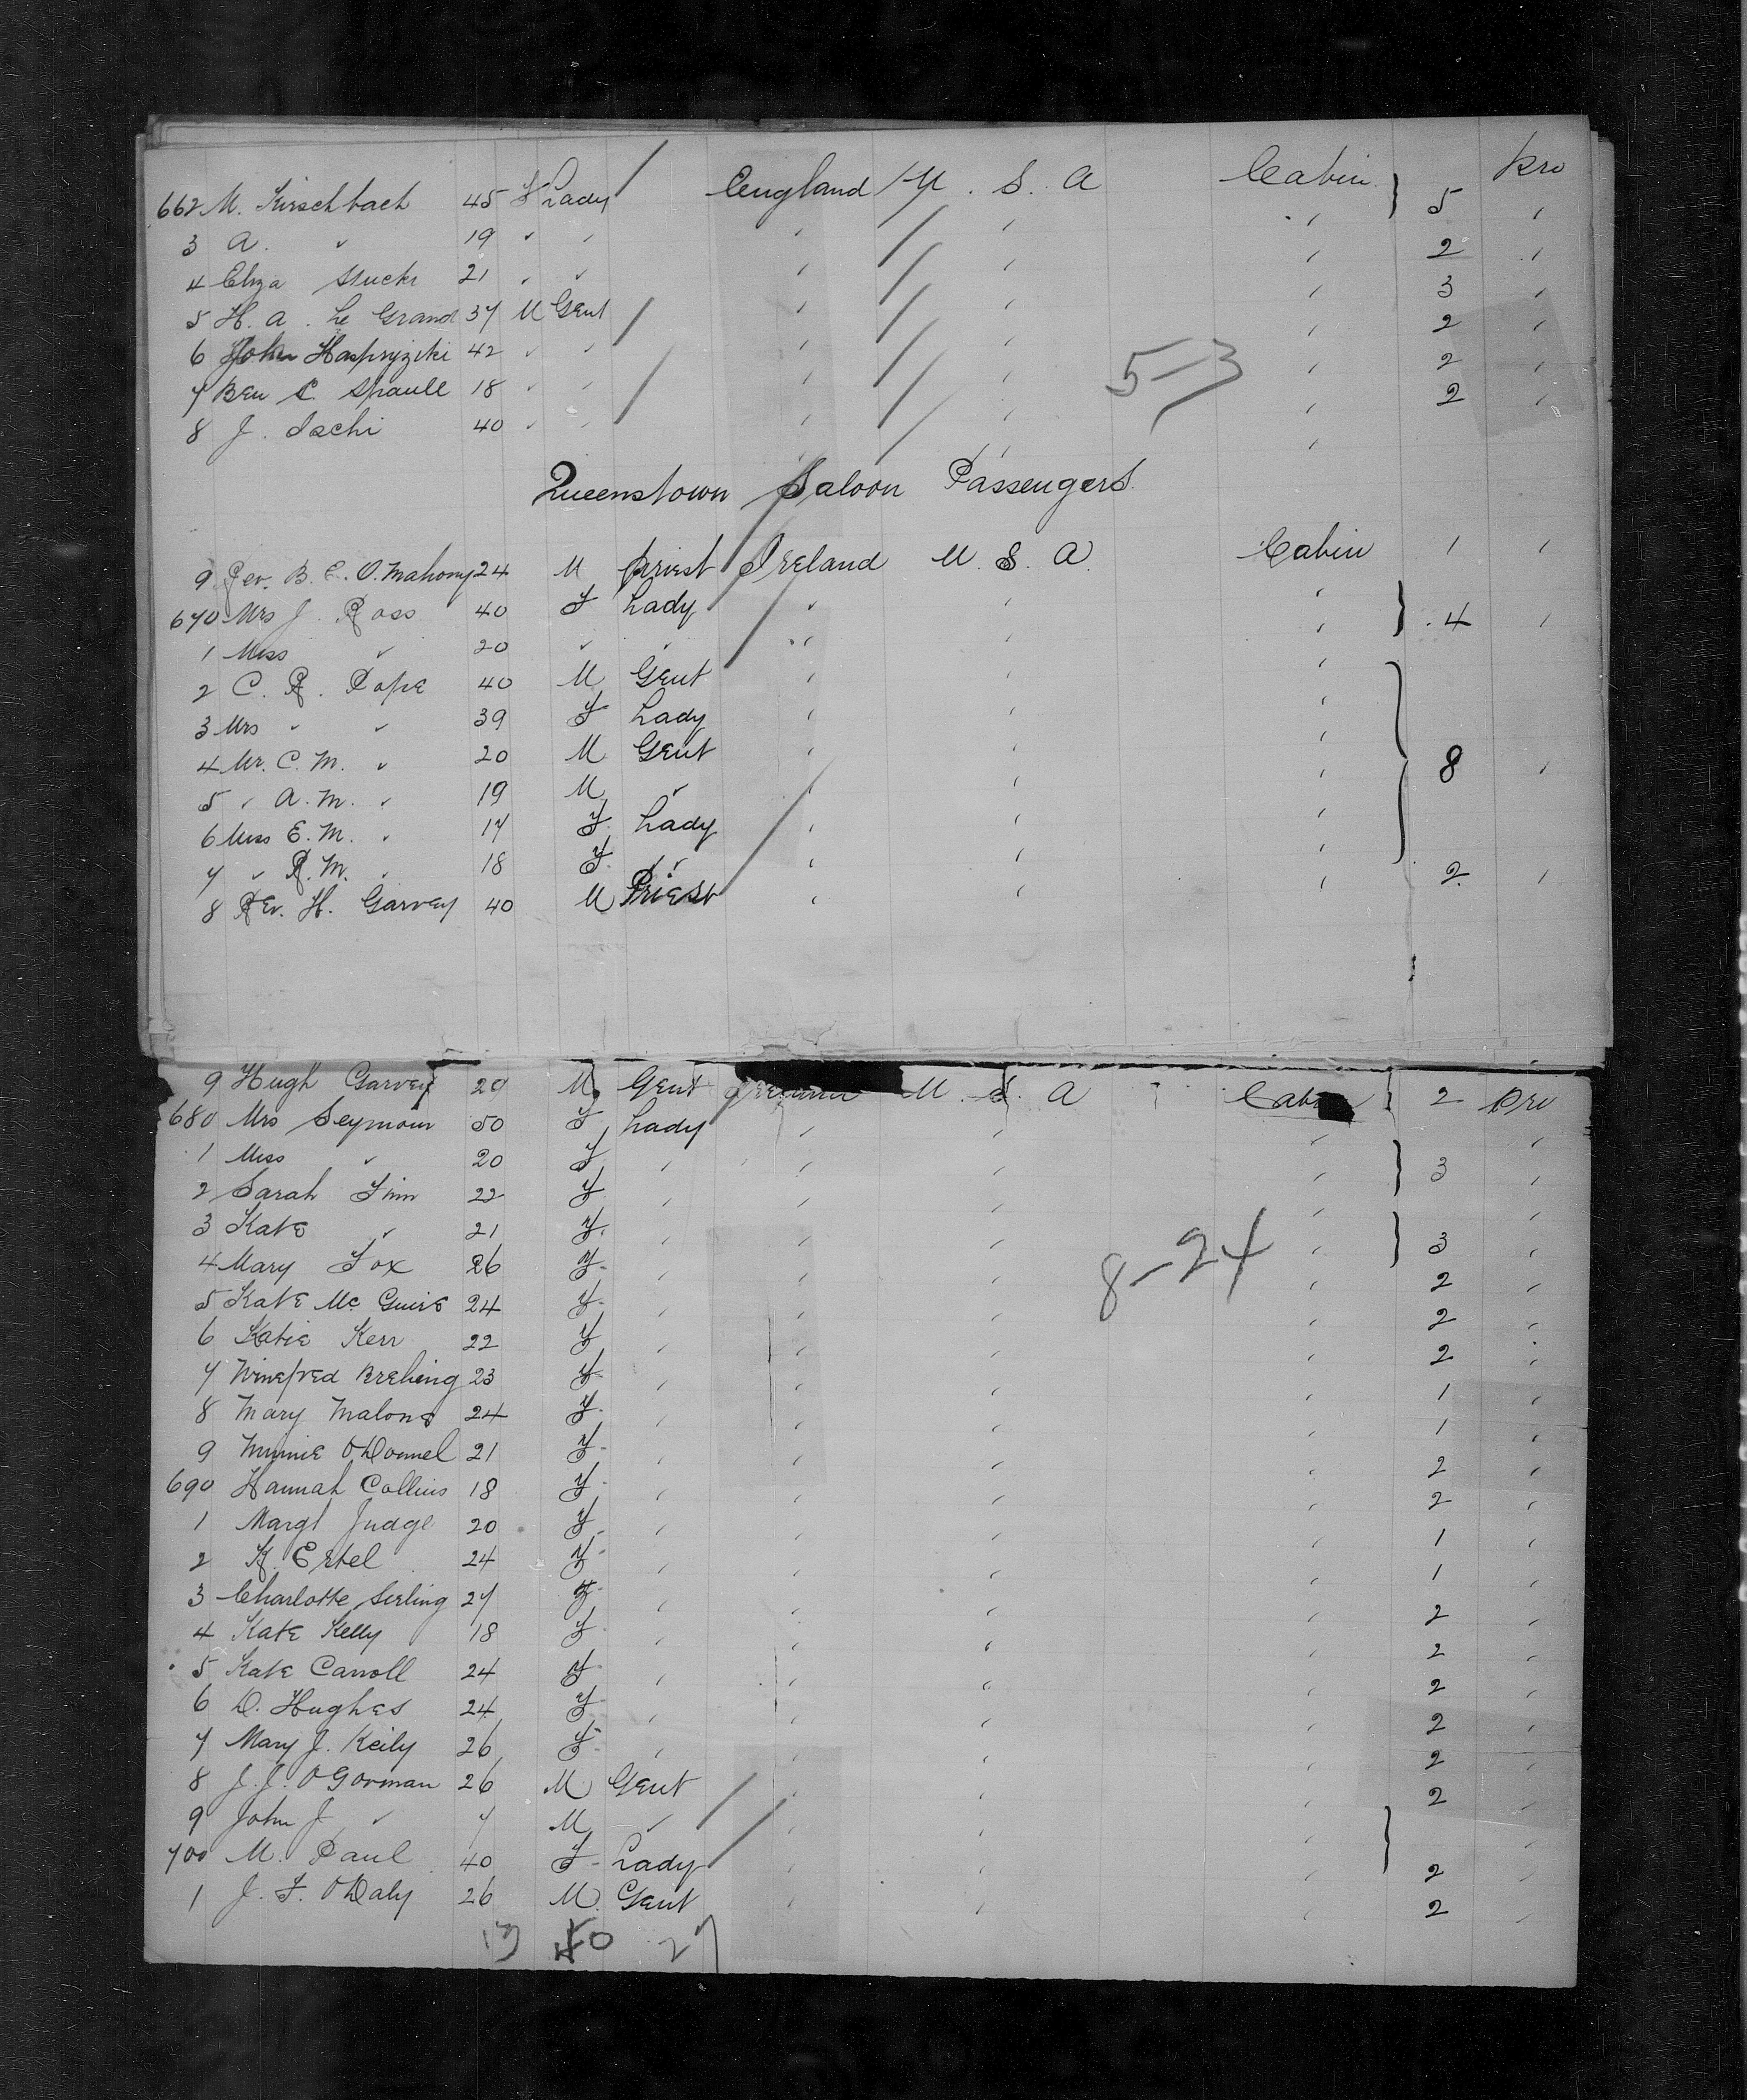 662 M. Kirschbach 45 F Lady England U. S. A Cabin } 5 pro
3 A. " 19 " " " " " "
4 Eliza Stucki 21 " " " " " 2 "
5 H. A. Le Grand 37 M Gent " " " 3 "
6 John 42 " " " " " 2 "
7 Ben C. Spaull 18 " " " " " 2 "
8 J. 40 " " " " " 2 "
5-3
Queenstown Saloon Passengers
9 Rev. B. E. O.Mahony 24 M Priest Ireland U. S. A. Cabin 1 "
670 Mrs J. Ross 40 F Lady " " " } 4 "
1 Miss " 20 " " " " "
2 C. R. Pope 40 M Gent " " " } 8 "
3 Mrs " " 39 F Lady " " "
4 Mr. C. M. " 20 M Gent " " "
5 " A. M. " 19 M " " " "
6 Miss E. M. " 17 F. Lady " " "
7 " R. M. " 18 F. " " " "
8 Rev. H. Garvey 40 M Priest " " " 2 "
9 Hugh Garvey 20 M Gent Ireland U. S. A Cabin 2 pro
680 Mrs Seymour 50 F Lady " " " } 3 "
1 Miss " 20 F " " " " "
2 Sarah Finn 22 F " " " " } 3 "
3 Kate " 21 F. " " " " "
4 Mary Fox 26 F. " " " " 2 "
5 Kate Mc Guire 24 F. " " " " 2 "
6 Katie Kerr 22 F " " " " 2 "
7 Winefred Breheny 23 F " " " " 1 "
8 Mary Malone 24 F. " " " " 1 "
9 Minnie O'Donnel 21 F. " " " " 2 "
690 Hannah Collins 18 F. " " " " 2 "
1 Margt Judge 20 F. " " " " 1 "
2 K. Ertel 24 F. " " " " 1 "
3 Charlotte Sirling 27 F. " " " " 2 "
4 Kate Kelly 18 F. " " " " 2 "
5 Kate Carroll 24 F " " " " 2 "
6 D. Hughes 24 F " " " " 2 "
7 Mary J. Keily 26 F. " " " " 2 "
8 J. J. O'Gorman 26 M Gent " " " 2 "
9 John J " 7 M " " " " } "
700 M. Paul 40 F. Lady " " " 2 "
1 J. F. O'Daly 26 M. Gent " " " 2 "
8-24
13 40 27